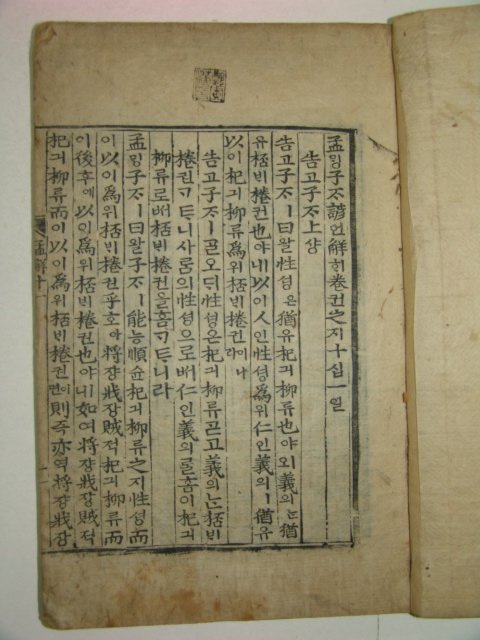 孟ᄆᆡᆼ子ᄌᆞ諺언解ᄒᆡ卷권之지十십一일
告고子ᄌᆞ上샹
告고子ᄌᆞㅣ曰왈性셩은猶유杞긔柳류也야ㅣ오義의ᄂᆞᆫ猶
유桮ᄇᆡ棬권也야ㅣ니以이人인性셩爲위仁인義의ㅣ猶유
以이杞긔柳류爲위桮ᄇᆡ棬권이니라
告고子ᄌᆞㅣᄀᆞᆯ오ᄃᆡ性셩은杞긔柳류ᄀᆞᆮ고義의ᄂᆞᆫ桮ᄇᆡ
棬권ᄀᆞᄐᆞ니사ᄅᆞᆷ의性셩으로ᄡᅥ仁인義의ᄅᆞᆯ홈이杞긔
柳류로ᄡᅥ桮ᄇᆡ棬권을홈ᄀᆞᄐᆞ니라
孟ᄆᆡᆼ子ᄌᆞㅣ曰왈子ᄌᆞㅣ能능順슌杞긔柳류之지性셩而
이以이爲위桮ᄇᆡ棬권乎호아將쟝戕장賊적杞긔柳류而
이後후에以이爲위桮ᄇᆡ棬권也야ㅣ니如여將쟝戕장賊적
杞긔柳류而이以이爲위桮ᄇᆡ棬권이면則즉亦역將쟝戕장
孟解十一